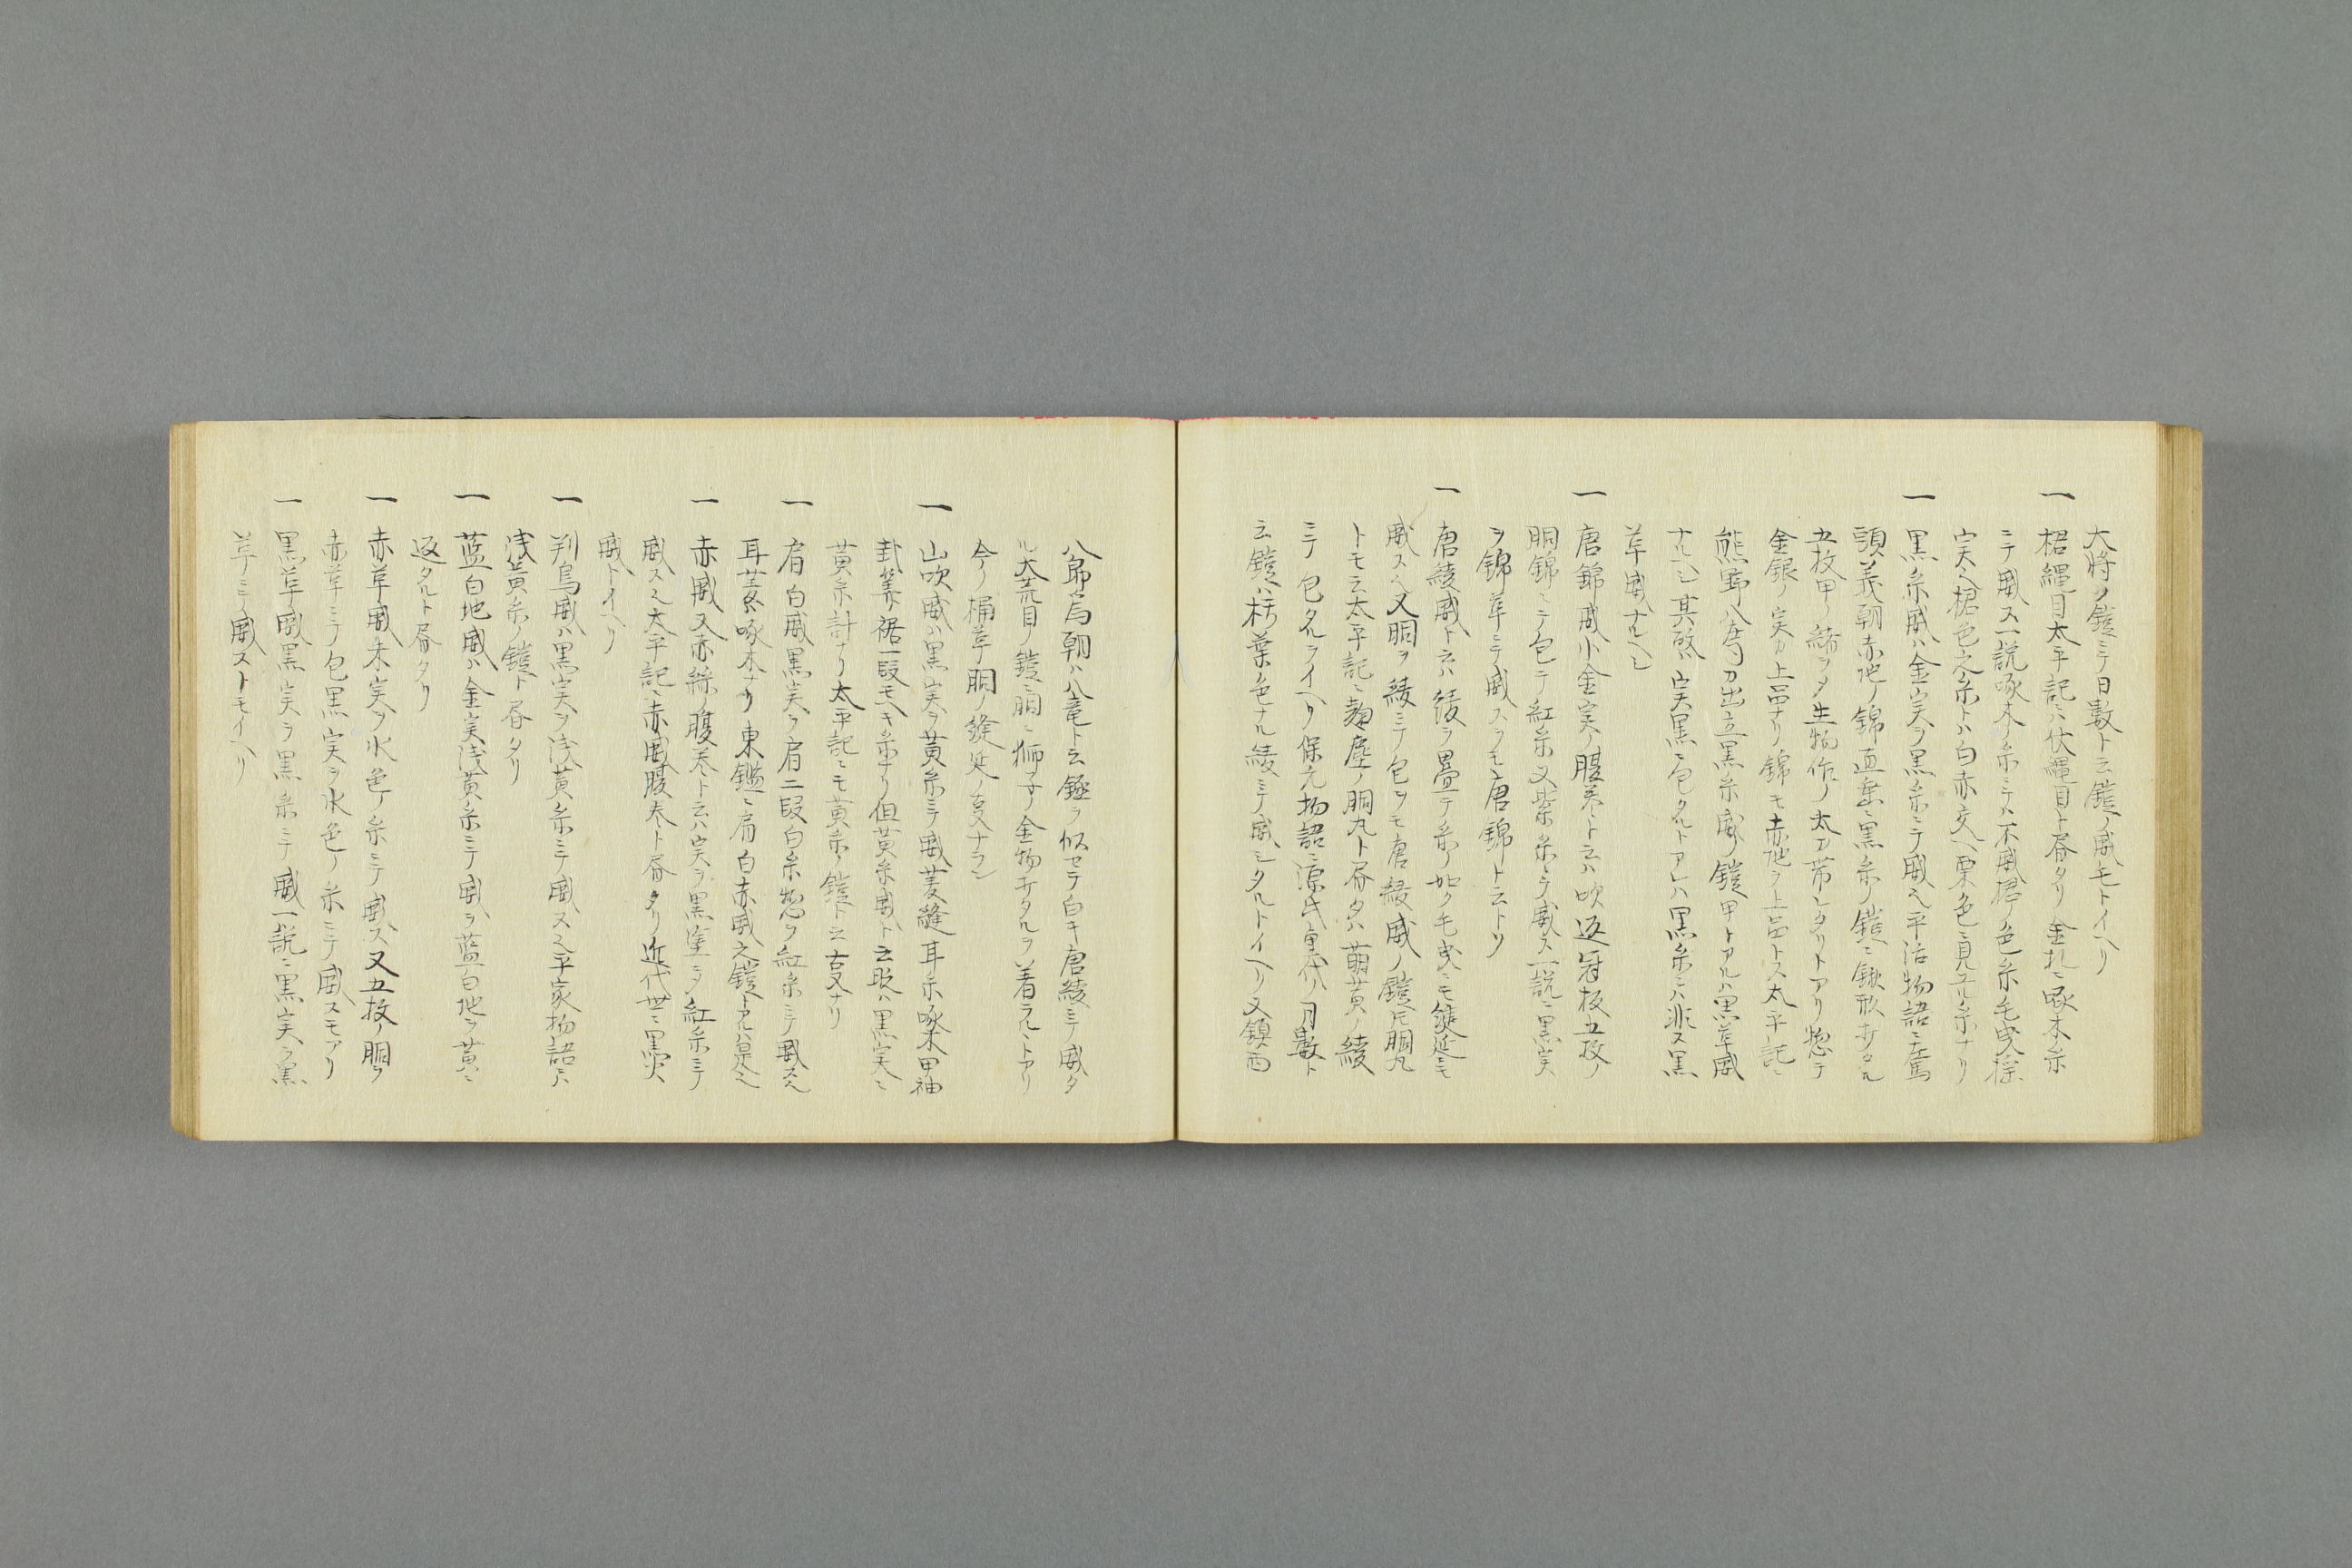 大将ヲ鎧ニテ日數ト云鎧ノ威毛トイヘリ
一 楉縄目太平記ニハ伏縄目ト昏タリ金札ニ啄木糸
ニテ威ス一説啄木ノ糸ニテハ不威楉ノ色糸毛曳
実ヘ楉色之糸トハ白赤交ヘ栗色ニ見ユル糸ナリ
一 黒糸威ハ金実ヲ黒糸ニテ威ヘ平治物語ニ
頭義朝赤地ノ錦直垂ニ黒糸ノ鎧ニ鍬形打タル
五枚甲ノ緒ヲ〆生物作ノ太刀帯シタリトアリ惣テ
金銀ノ実カ上品ナリ錦モ赤地ヲ上品トス太平記ニ
熊野八庄司カ出立黒糸威ノ鎧甲トアルハ黒革威
ナルヘシ其故ハ実黒ニ包タルトアレハ黒糸ニハ非ス黒
革威ナルヘシ
一 唐錦威小金実ノ腹巻ト云ハ吹返冠板五枚ノ
胴錦ニテ包テ紅糸又紫糸ニテ威ス一説ニ黒実
ヲ錦革ニテ威スヲモ唐錦ト云トソ
一 唐綾威ト云ハ綾ヲ畳テ糸ノ如ク毛曳ニモ縫延ニモ
威スヘ又胴ヲ綾ニテ包ヲモ唐綾威ノ鎧胴丸
トモ云太平記ニ麹塵ノ胴丸ト昏タハ萌黄ノ綾
ニテ包タルライヘリ保元物語ニ源氏重代ノ月數ト
云鎧ハ朽葉色ナル綾ニテ威シタルトイヘリ又鎮西
八郎為朝ハ八竜ト云鎧ヲ似セテ白キ唐綾ニテ威タ
ル大荒目ノ鎧ニ胴ニ獅子ノ金物打タルヲ着ラルトアリ
今ノ桶革胴ノ縫延ノ夏ナラン
一 山吹威ハ黒実ヲ黄糸ニテ威菱縫耳糸啄木甲袖
卦裾一段モヘキ糸ナリ但黄糸威ト云時ハ黒実ニ
黄糸計ナリ太平記ニモ黄糸ノ鎧ト云古夏ナリ
一 肩白威黒実ヲ肩二段白糸惣ヲ紅糸ニテ威スヘ
耳菱啄木ナリ東鑑ニ肩白赤威之鎧トアルハ是ヘ
一 赤威又赤綜ノ腹巻ト云ハ実ヲ黒塗ニ〆紅糸ニテ
威スヘ太平記ニ赤威腹巻ト昏タリ近代世ニ黒実
威トイヘリ
一 判烏威ハ黒実ヲ浅黄糸ニテ威スヘ平家物語ニハ
浅黄糸ノ鎧ト昏タリ
一 藍白地威ハ金実浅黄糸ニテ威ヲ藍白地ヲ黄ニ
返タルト昏タリ
一 赤革威朱実ヲ水色ノ糸ニテ威ス又五枚ノ胴ヲ
赤革ニテ包黒実ヲ水色ノ糸ニテ威スモアリ
一 黒革威黒実ヲ黒糸ニテ威一説ニ黒実ヲ黒
革ニテ威ストモイヘリ